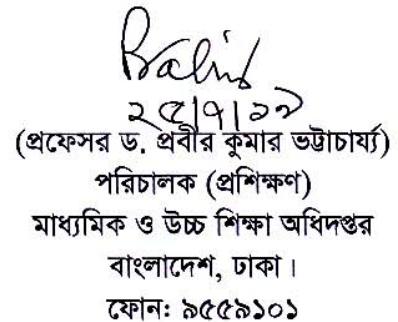 ২৫|৭|১৯
(প্রফেসর ড. প্রবীর কুমার ভট্টাচার্য্য)
পরিচালক (প্রশিক্ষণ)
মাধ্যমিক ও উচ্চ শিক্ষা অধিদপ্তর
বাংলাদেশ, ঢাকা।
ফোন: ৯৫৫৯১০১